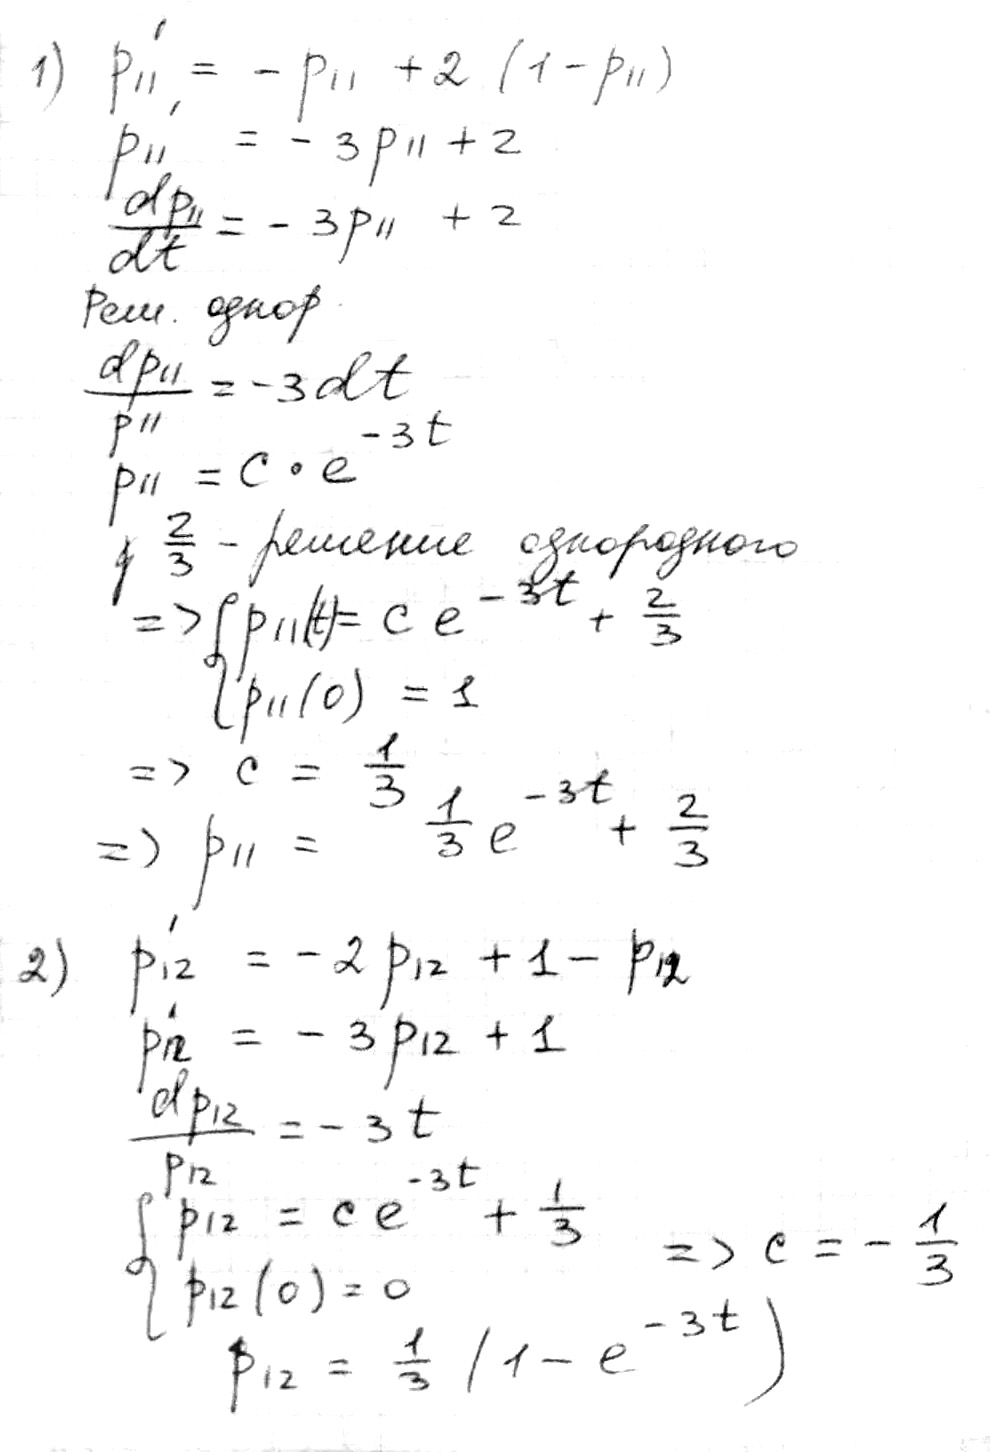 1) p₁₁' = - p₁₁ + 2 (1 - p₁₁)
p₁₁' = - 3p₁₁ + 2
dp₁₁/dt = - 3p₁₁ + 2
Реш. однор.
dp₁₁/p₁₁ = -3dt
p₁₁ = C · e^{-3t}
2/3 - решение однородного
=> { p₁₁(t) = c e^{-3t} + 2/3
p₁₁(0) = 1
=> c = 1/3
=> p₁₁ = 1/3 e^{-3t} + 2/3
2) p₁₂' = - 2p₁₂ + 1 - p₁₂
p₁₂' = - 3p₁₂ + 1
dp₁₂/p₁₂ = - 3t
{ p₁₂ = c e^{-3t} + 1/3
p₁₂(0) = 0 => c = - 1/3
p₁₂ = 1/3 (1 - e^{-3t})